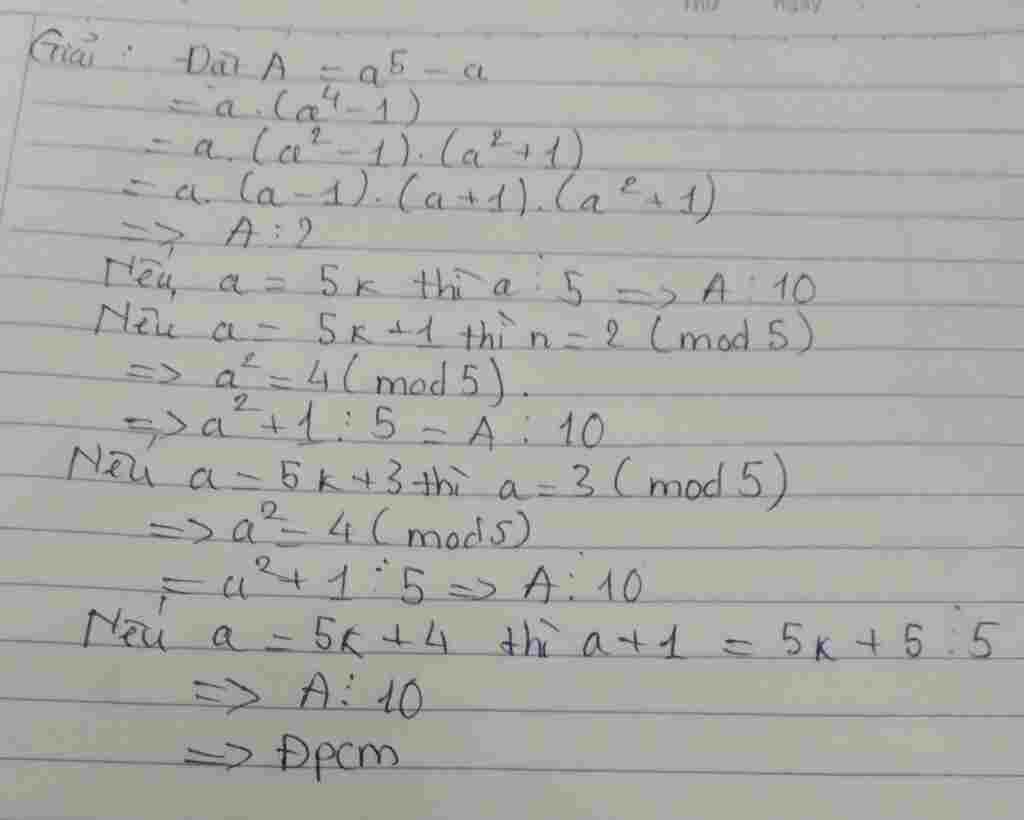 Thứ Ngày
Giải : Đặt A = a⁵ - a
= a . (a⁴ - 1)
= a. (a² - 1) . (a² + 1)
= a. (a - 1) . (a + 1) . (a² + 1)
=> A ⋮ 2
Nếu a = 5k thì a ⋮ 5 => A ⋮ 10
Nếu a = 5k + 1 thì n = 2 (mod 5)
=> a² = 4 (mod 5).
=> a² + 1 ⋮ 5 = A ⋮ 10
Nếu a = 5k + 3 thì a = 3 (mod 5)
=> a² = 4 (mod 5)
= a² + 1 ⋮ 5 => A ⋮ 10
Nếu a = 5k + 4 thì a + 1 = 5k + 5 ⋮ 5
=> A ⋮ 10
=> Đpcm